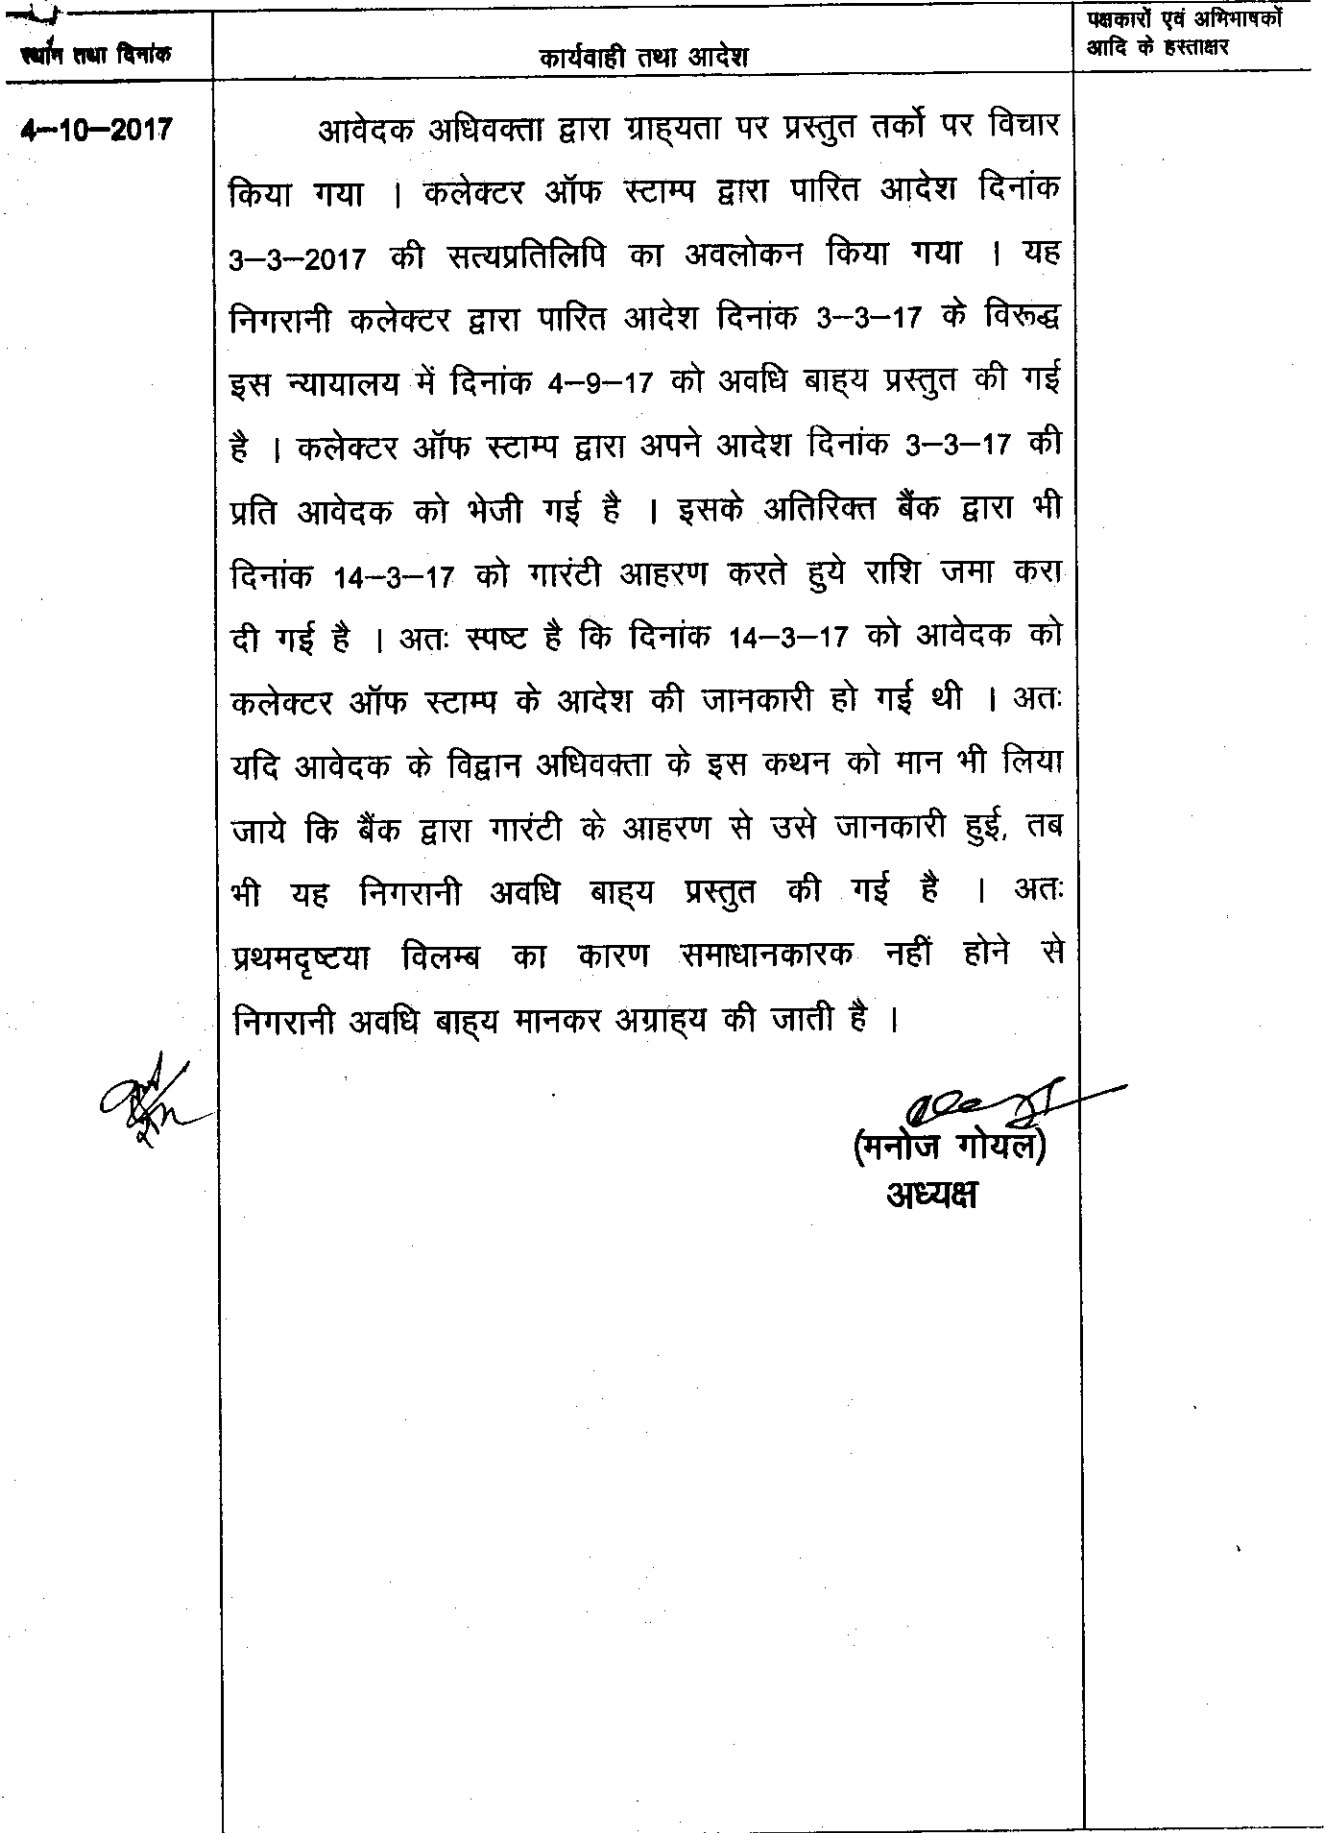 पक्षकारों एवं अभिभाषकों
आदि के हस्ताक्षर
स्थान तथा दिनांक
कार्यवाही तथा आदेश
4–10–2017
आवेदक अधिवक्ता द्वारा ग्राह्यता पर प्रस्तुत तर्को पर विचार
किया गया । कलेक्टर ऑफ स्टाम्प द्वारा पारित आदेश दिनांक
3–3–2017 की सत्यप्रतिलिपि का अवलोकन किया गया । यह
निगरानी कलेक्टर द्वारा पारित आदेश दिनांक 3–3–17 के विरूद्ध
इस न्यायालय में दिनांक 4–9–17 को अवधि बाह्य प्रस्तुत की गई
है । कलेक्टर ऑफ स्टाम्प द्वारा अपने आदेश दिनांक 3–3–17 की
प्रति आवेदक को भेजी गई है । इसके अतिरिक्त बैंक द्वारा भी
दिनांक 14–3–17 को गारंटी आहरण करते हुये राशि जमा करा
दी गई है । अतः स्पष्ट है कि दिनांक 14–3–17 को आवेदक को
कलेक्टर ऑफ स्टाम्प के आदेश की जानकारी हो गई थी । अतः
यदि आवेदक के विद्वान अधिवक्ता के इस कथन को मान भी लिया
जाये कि बैंक द्वारा गारंटी के आहरण से उसे जानकारी हुई, तब
भी यह निगरानी अवधि बाह्य प्रस्तुत की गई है । अतः
प्रथमदृष्टया विलम्ब का कारण समाधानकारक नहीं होने से
निगरानी अवधि बाह्य मानकर अग्राह्य की जाती है ।
(मनोज गोयल)
अध्यक्ष